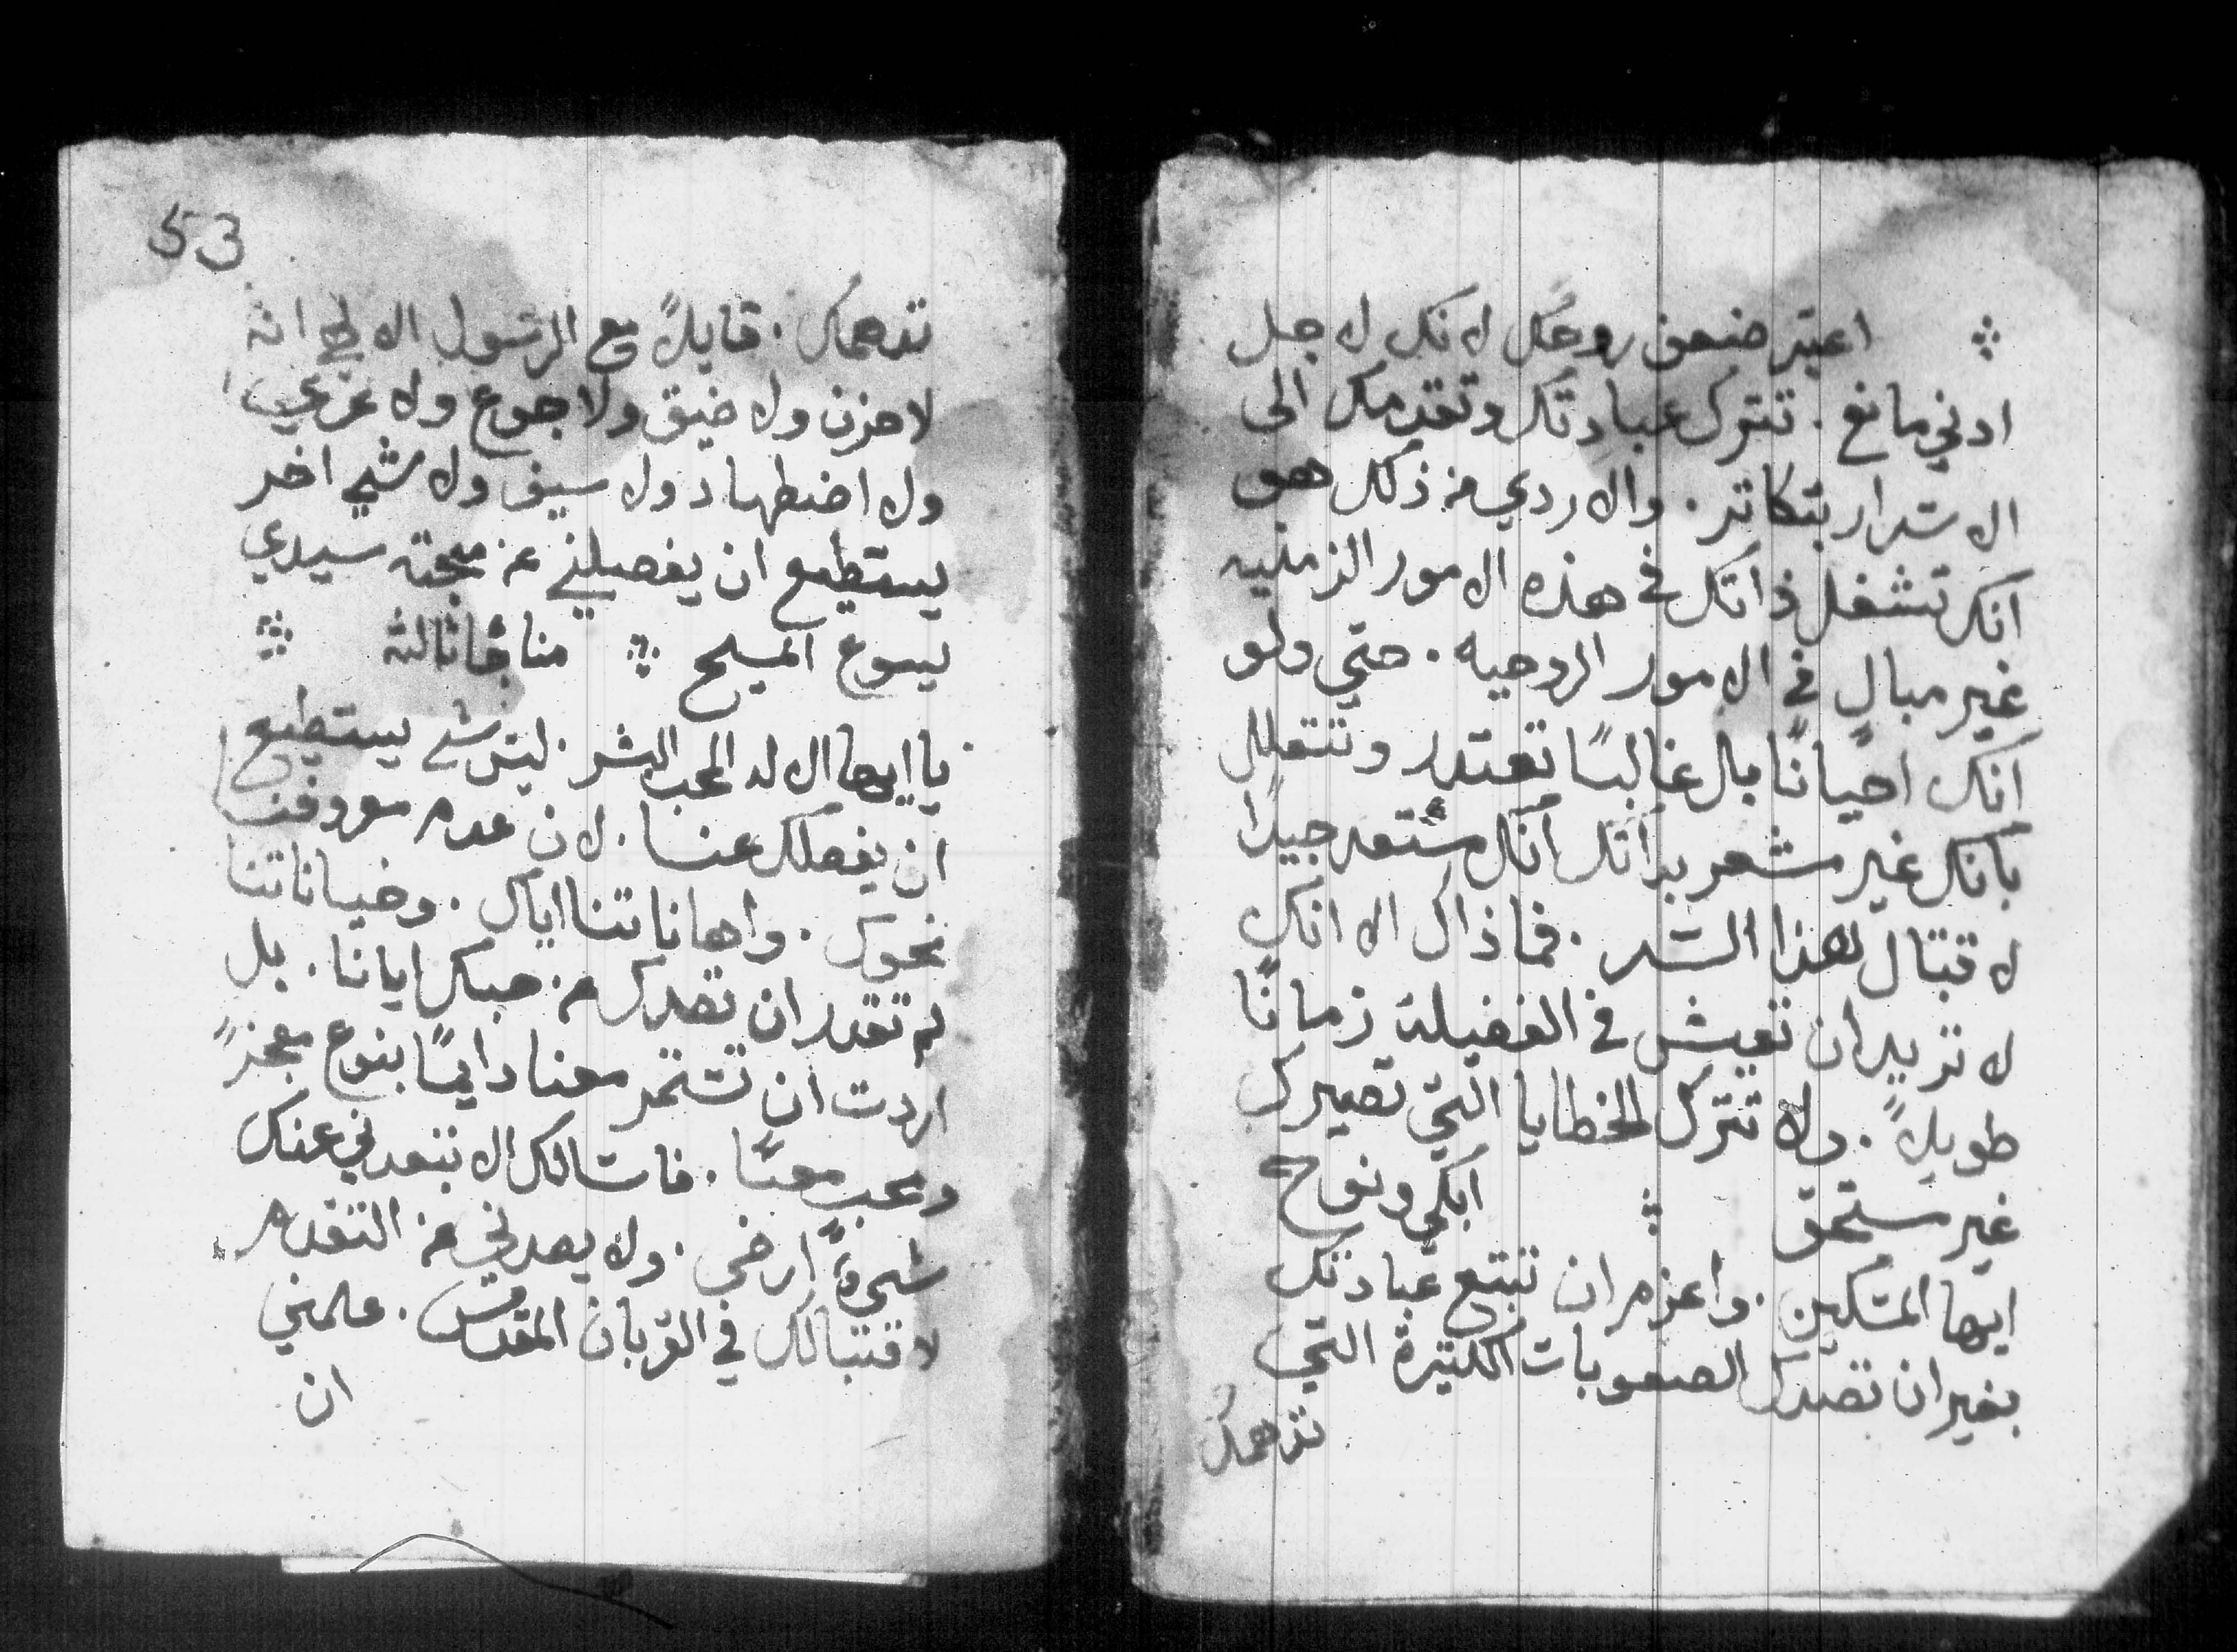 اعتبر ضعف روحك لانك لاجل
ادني مانع . تترك عبادتك وتقدمك الى
الاسرار بتكاتر . والاردي من ذلك هو
انك تشغل ذاتك في هذه الامور الزمنيه
غير مبالٍ في الامور الروحيه . حتي ولو
انك احيانًا بل غالبًا تعتدر وتتعلل
بانك غير مشعر بذاتك انك مستعد جيدًا
لاقتبال لهذا السر . فما ذاك الا انك
لا تريد ان تعيش في الفضيلة زمانًا
طويلاً . ولا تترك الخطايا التي تصيرك
غير مستحق ابكي ونوح
ايها المسكين . واعزم ان تتبع عبادتك
بغير ان تصدك الصعوبات الكتيرة التي
تدهمك
53
تدهمك . قايلاً مع الرسول الالهي انه
لا حزن ولا ضيق ولا جوع ولا عري
ولا اضطهاد ولا سيف ولا شي اخر
يستطيع ان يفصلني عن محبة سيدي
يسوع المسيح مناجاة ثالثة
يا ايها الاله المحب البشر . ليس شي يستطيع
ان يفصلك عنا . لان عدم معروفنا
نحوك . واهاناتنا اياك . وخياناتنا
لم تقدر ان تصدك من حبك ايانا . بل
اردت ان تستمر معنا دايمًا بنوع معجز
وعجب معنا . فاسالك الا يبعدني عنك
شيءً ارضي . ولا يصدني من التقدم
لاقتبالك في القربان المقدس . علمني
ان